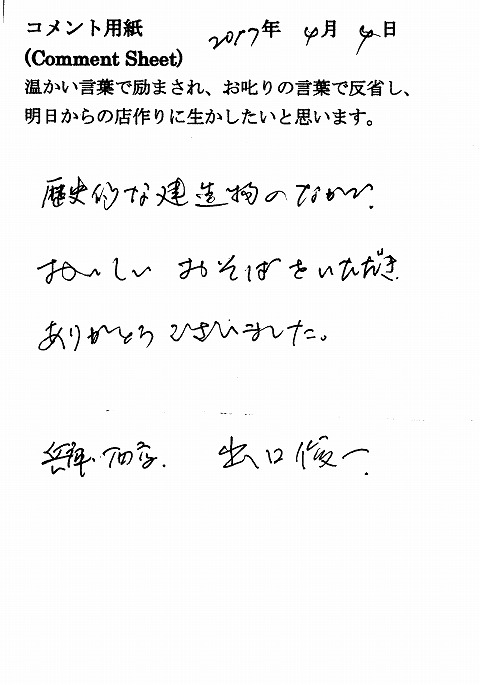 コメント用紙 2017年 4月 4日
(Comment Sheet)
温かい言葉で励まされ、お叱りの言葉で反省し、
明日からの店作りに生かしたいと思います。
歴史的な建造物のなかで、
おいしい おそばをいただき
ありがとうございました。
兵庫・西宮. 出口俊一.